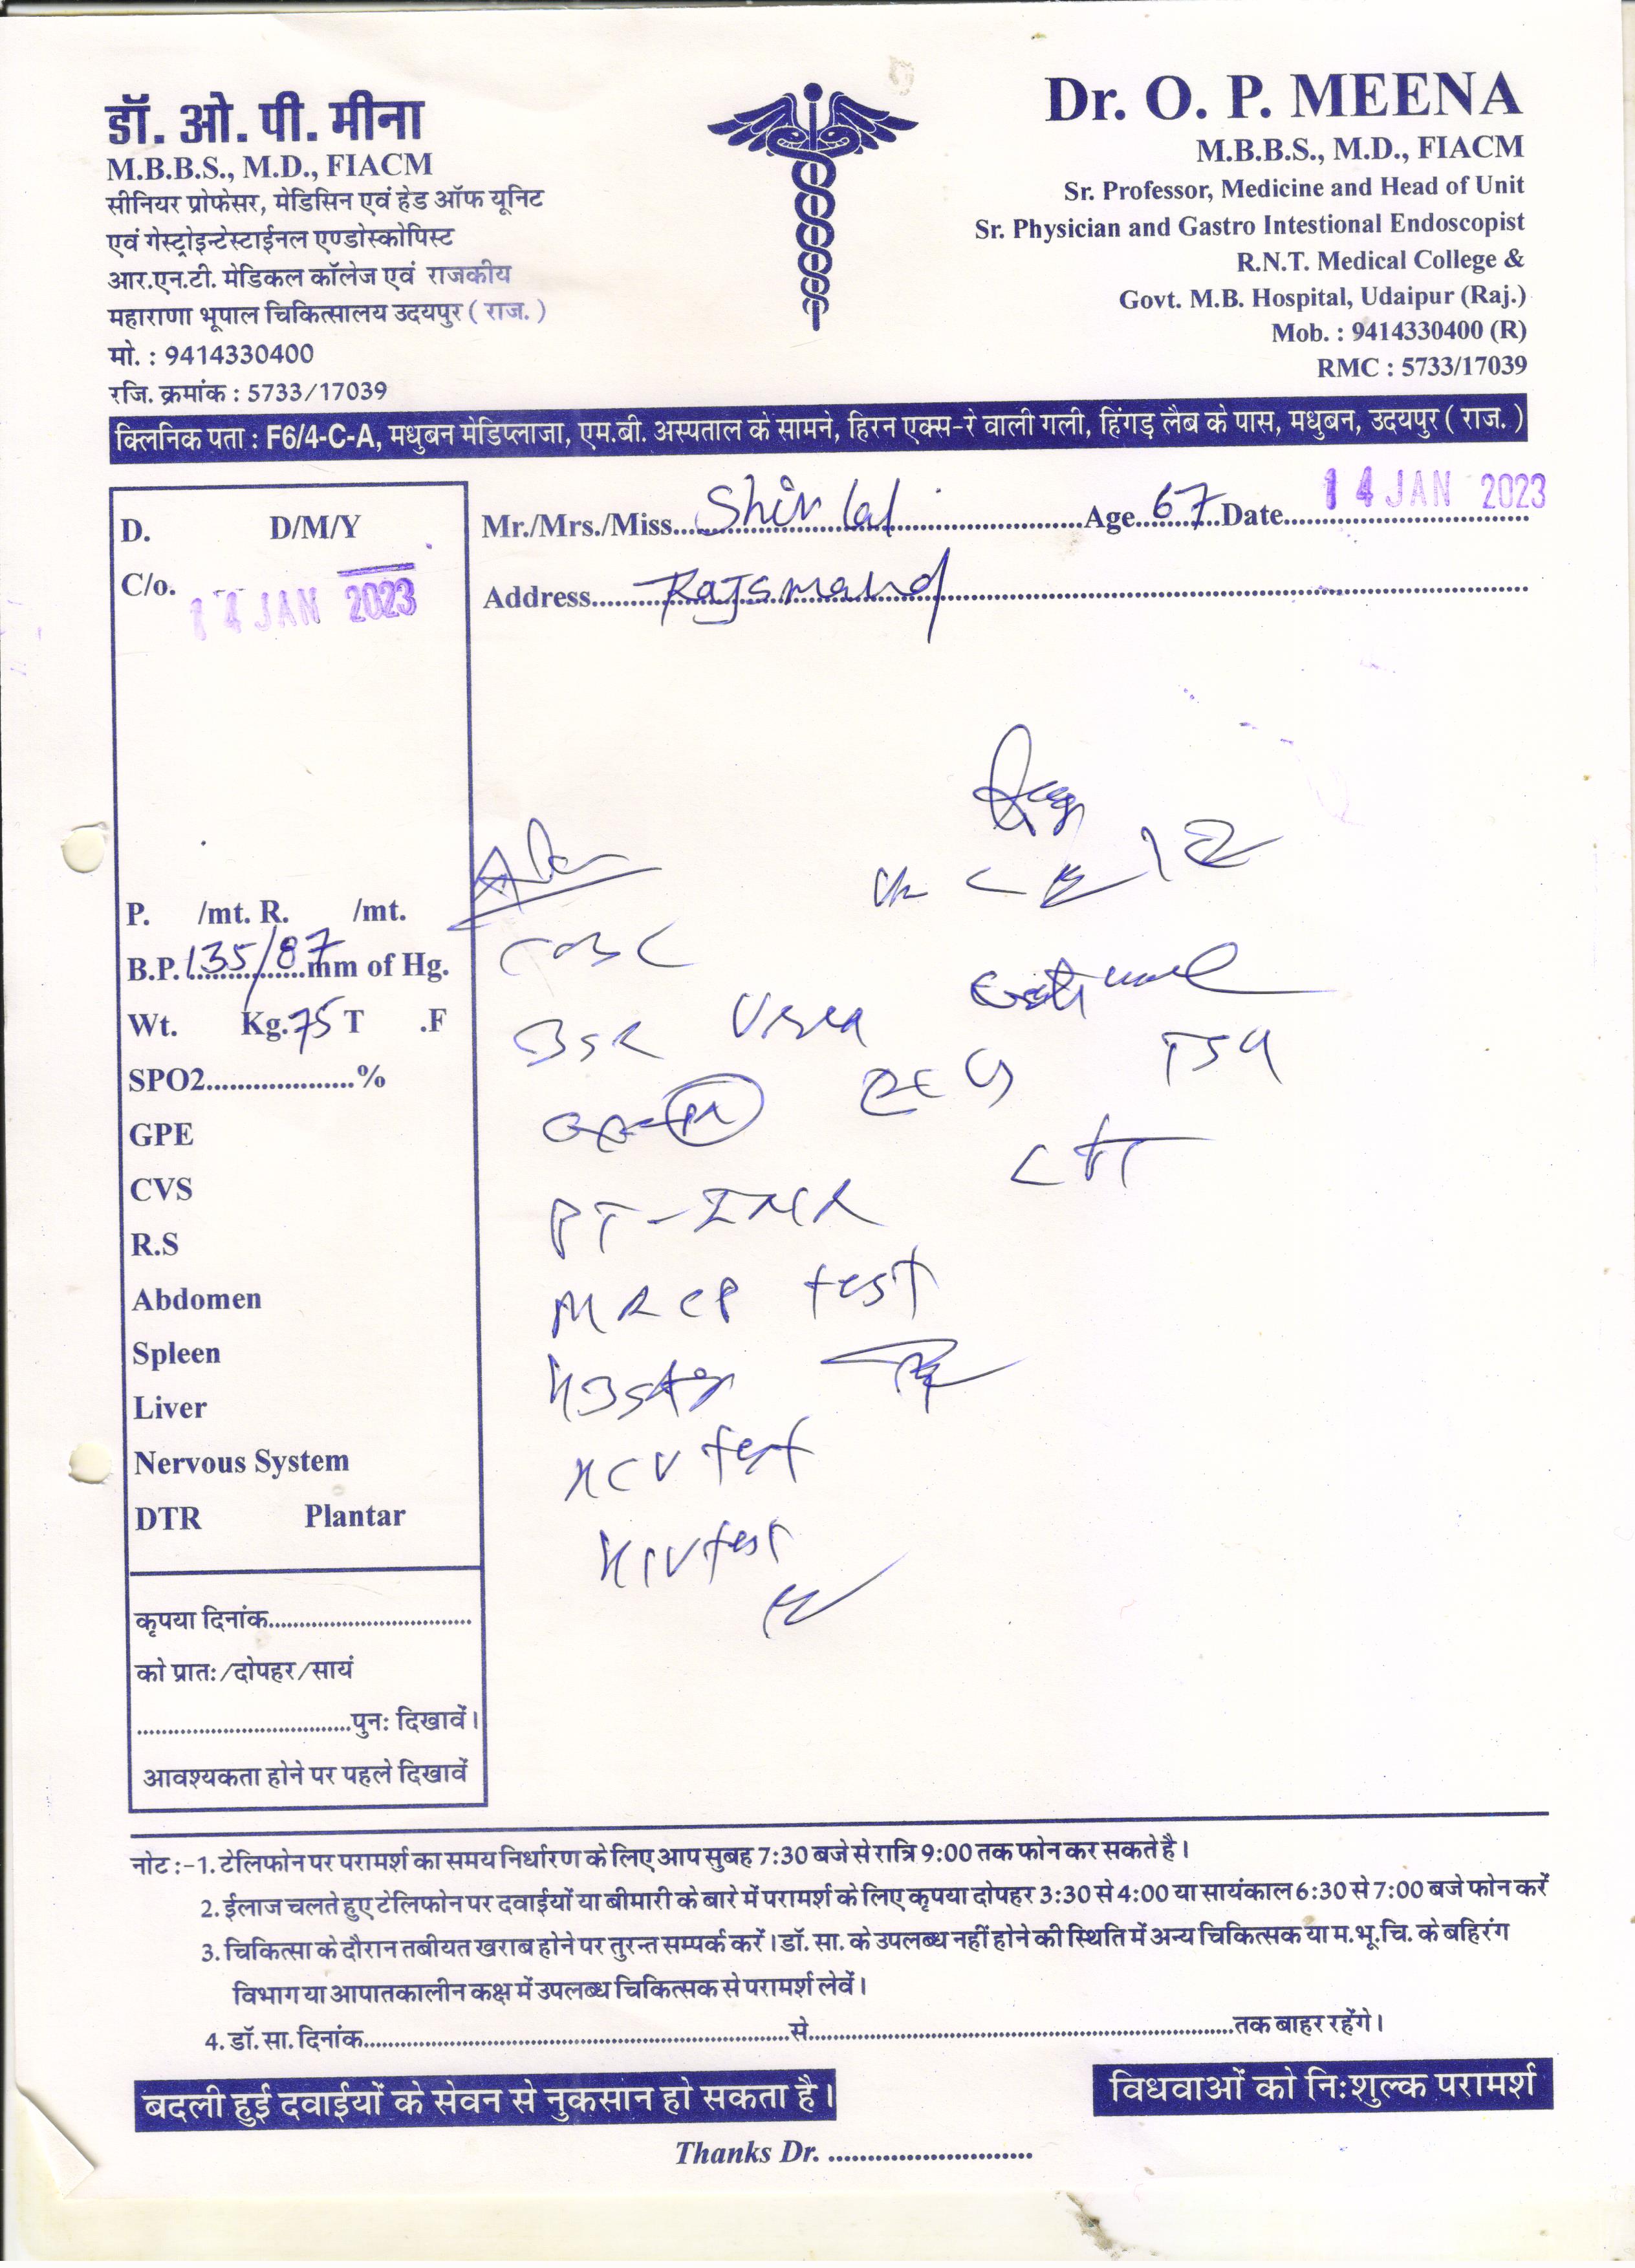 डॉ. ओ. पी. मीना
M.B.B.S., M.D., FIACM
सीनियर प्रोफेसर, मेडिसिन एवं हेड ऑफ यूनिट
एवं गेस्ट्रोइन्टेस्टाईनल एण्डोस्कोपिस्ट
आर.एन.टी. मेडिकल कॉलेज एवं राजकीय
महाराणा भूपाल चिकित्सालय उदयपुर ( राज. )
मो. : 9414330400
रजि. क्रमांक : 5733/17039
Dr. O. P. MEENA
M.B.B.S., M.D., FIACM
Sr. Professor, Medicine and Head of Unit
Sr. Physician and Gastro Intestional Endoscopist
R.N.T. Medical College &
Govt. M.B. Hospital, Udaipur (Raj.)
Mob. : 9414330400 (R)
RMC : 5733/17039
क्लिनिक पता : F6/4-C-A, मधुबन मेडिप्लाजा, एम.बी. अस्पताल के सामने, हिरन एक्स-रे वाली गली, हिंगड़ लैब के पास, मधुबन, उदयपुर ( राज. )
Mr./Mrs./Miss. Shiv lal Age 67 Date 14 JAN 2023
Address Rajsmand
D. D/M/Y
C/o. 14 JAN 2023
P. /mt. R. /mt.
B.P. 135/87 mm of Hg.
Wt. Kg. 75 T .F
SPO2 %
GPE
CVS
R.S
Abdomen
Spleen
Liver
Nervous System
DTR Plantar
कृपया दिनांक
को प्रातः/दोपहर/सायं
पुनः दिखावें।
आवश्यकता होने पर पहले दिखावें
CBC
BSR Urea
ECG
PT-INR
MRCP test
HCV test
HIV test
नोट :-1. टेलिफोन पर परामर्श का समय निर्धारण के लिए आप सुबह 7:30 बजे से रात्रि 9:00 तक फोन कर सकते है।
2. ईलाज चलते हुए टेलिफोन पर दवाईयों या बीमारी के बारे में परामर्श के लिए कृपया दोपहर 3:30 से 4:00 या सायंकाल 6:30 से 7:00 बजे फोन करें
3. चिकित्सा के दौरान तबीयत खराब होने पर तुरन्त सम्पर्क करें। डॉ. सा. के उपलब्ध नहीं होने की स्थिति में अन्य चिकित्सक या म.भू.चि. के बहिरंग
विभाग या आपातकालीन कक्ष में उपलब्ध चिकित्सक से परामर्श लेवें।
4. डॉ. सा. दिनांक से तक बाहर रहेंगे।
बदली हुई दवाईयों के सेवन से नुकसान हो सकता है।
विधवाओं को निःशुल्क परामर्श
Thanks Dr.